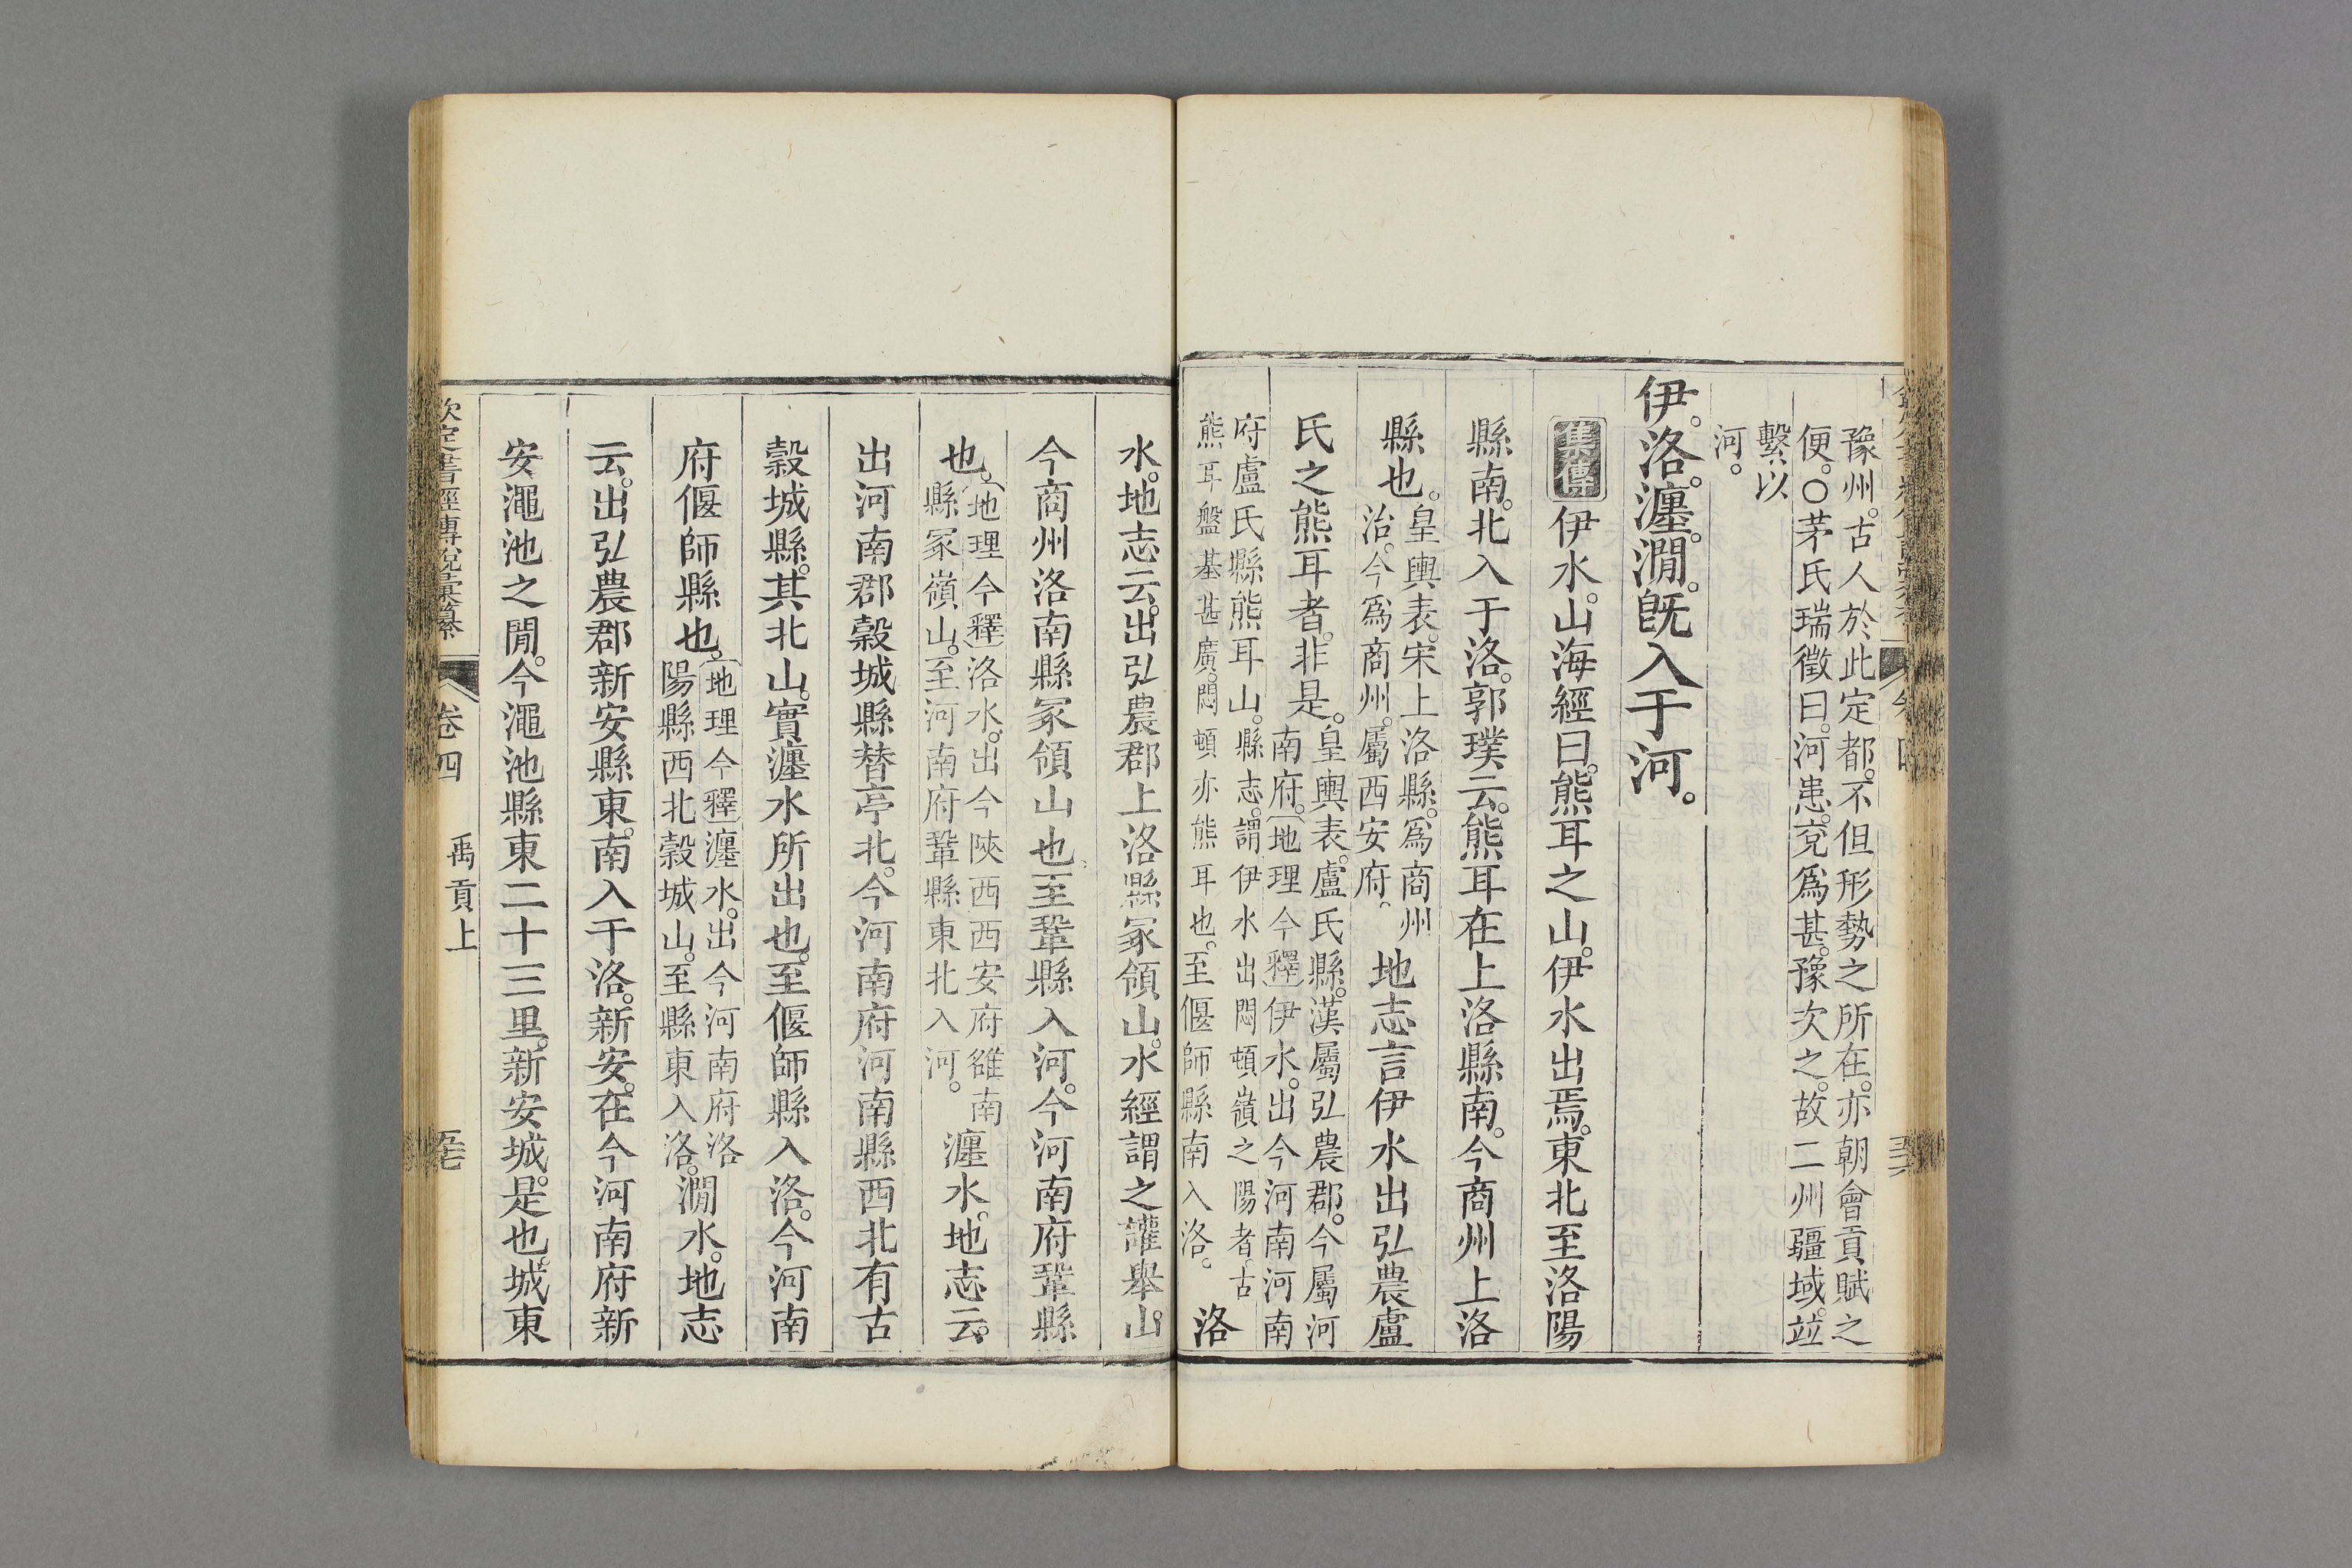 豫州。古人於此定都。不但形勢之所在。亦朝會貢賦之
便。○茅氏瑞徵曰。河患。兗爲甚。豫次之。故二州疆域。竝
繫以
河。
伊。洛。瀍。澗。旣入于河。
集傳 伊水。山海經曰。熊耳之山。伊水出焉。東北至洛陽
縣南。北入于洛。郭璞云。熊耳在上洛縣南。今商州上洛
縣也。
皇輿表。宋上洛縣。爲商州
治。今爲商州。屬西安府。
地志言伊水出弘農盧
氏之熊耳者。非是。
皇輿表。盧氏縣。漢屬弘農郡。今屬河
南府。〔地理今釋〕伊水。出今河南河南
府盧氏縣熊耳山。縣志。謂伊水出悶頓嶺之陽者。古
熊耳盤基甚廣。悶頓亦熊耳也。至偃師縣南入洛。
洛
水。地志云。出弘農郡上洛縣冢領山。水經謂之讙舉山。
今商州洛南縣冢領山也。至鞏縣入河。今河南府鞏縣
也。
〔地理今釋〕洛水。出今陝西西安府雒南
縣冢嶺山。至河南府鞏縣東北入河。
瀍水。地志云。
出河南郡穀城縣替亭北。今河南府河南縣西北有古
穀城縣。其北山。實瀍水所出也。至偃師縣入洛。今河南
府偃師縣也。
〔地理今釋〕瀍水。出今河南府洛
陽縣西北穀城山。至縣東入洛。
澗水。地志
云。出弘農郡新安縣東。南入于洛。新安。在今河南府新
安澠池之閒。今澠池縣東二十三里。新安城。是也。城東
欽定書經傳說彙纂
卷四 禹貢上